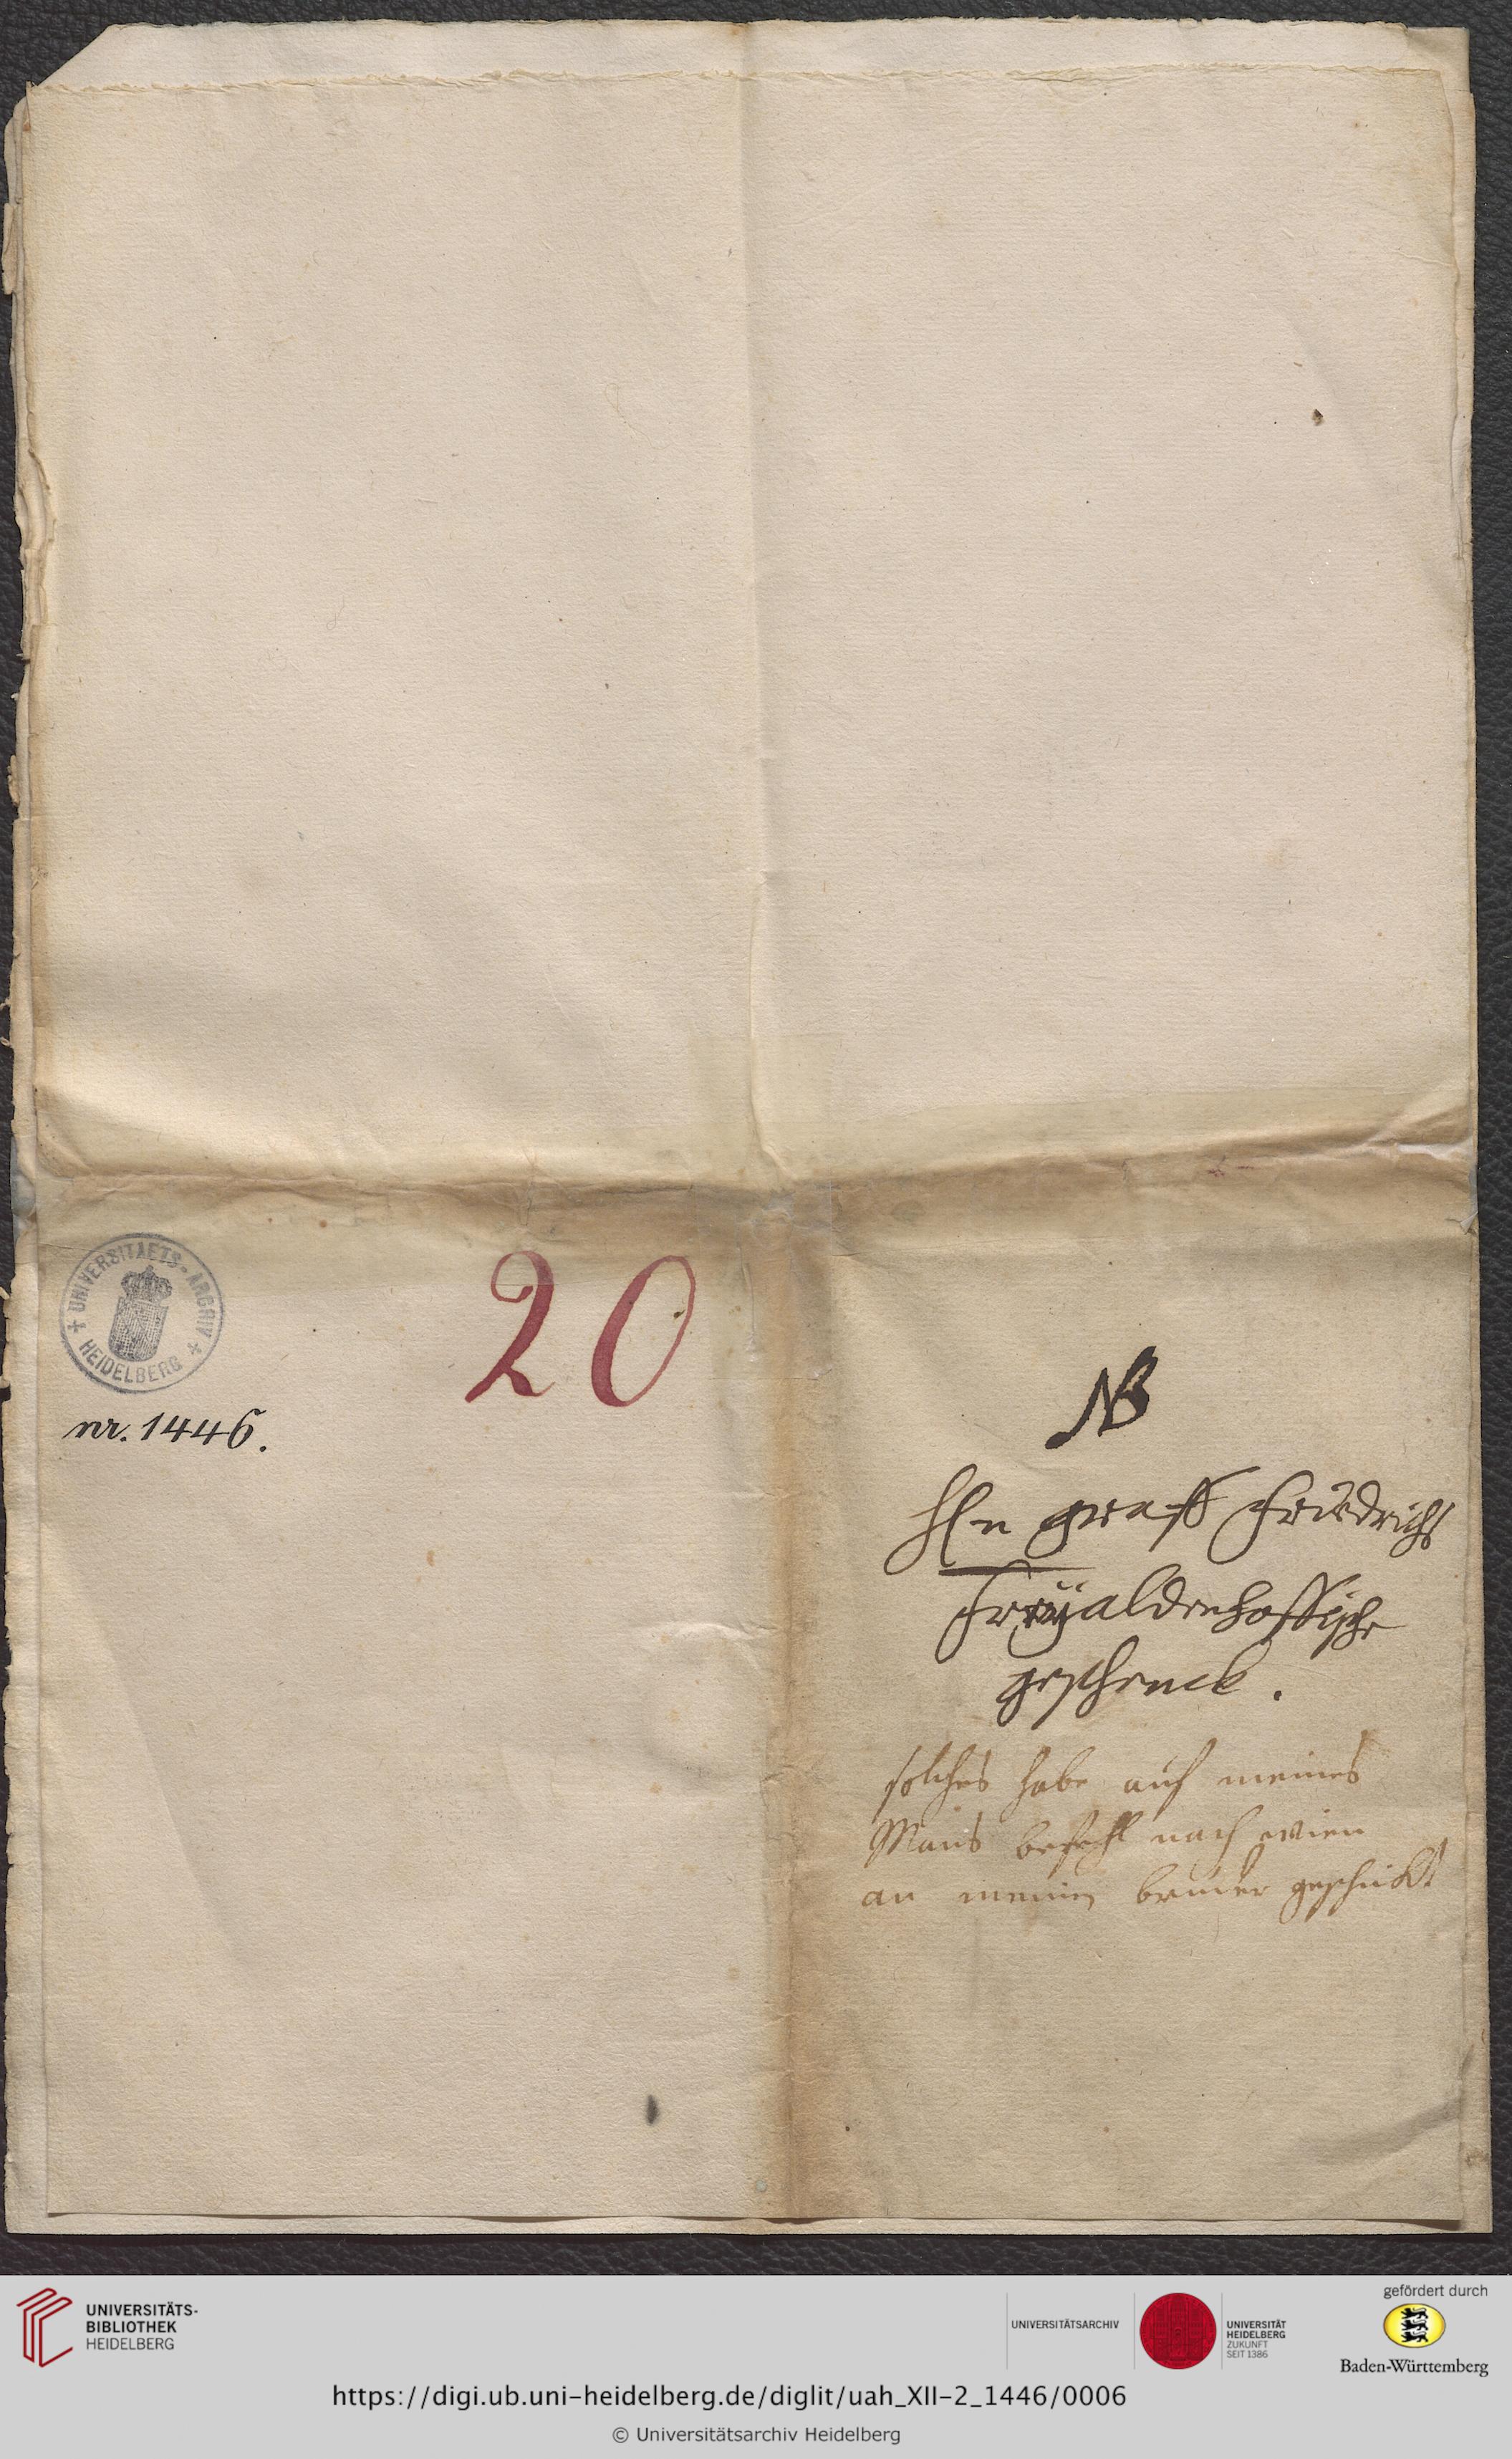 UNIVERSITAETS-ARCHIV
HEIDELBERG
nr. 1446.
20
NB
graff Friedrichs
Freÿaldenhoffische
geschenck.
solches habe auf meines
befehl nach wien
an meinen bruder geschickt
UNIVERSITÄTS-
BIBLIOTHEK
HEIDELBERG
UNIVERSITÄTSARCHIV
UNIVERSITÄT
HEIDELBERG
ZUKUNFT
SEIT 1386
gefördert durch
Baden-Württemberg
https://digi.ub.uni-heidelberg.de/diglit/uah_XII-2_1446/0006
© Universitätsarchiv Heidelberg